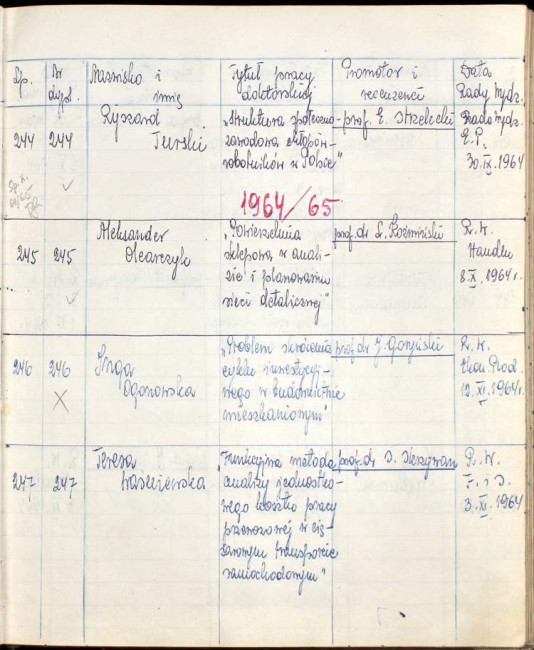 Lp.
Nr
dypl.
Nazwisko i
imię
Tytuł pracy
doktorskiej
Promotor i
recenzenci
Data
Rady Wydz.
244
244
Ryszard
Turski
„Struktura społeczno-
zawodowa chłopów-
robotników w Polsce"
prof. E. Strzelecki
Rada Wydz.
E.P.
30.IX.1964
1964/65
245
245
Aleksander
Olearczyk
„Powierzchnia
sklepowa w anali-
zie i planowaniu
sieci detalicznej"
prof. dr L. Koźmiński
R. W.
Handlu
8.X.1964r.
246
246
Inga
Ogonowska
„Problem skrócenia
cyklu inwestycyj-
nego w budownictwie
mieszkaniowym"
prof. dr J. Goryński
R. W.
Ekon. Prod.
12.XI.1964r.
247
247
Teresa
„Funkcyjna metoda
analizy jednostko-
wego kosztu pracy
przewozowej w cię-
żarowym transporcie
samochodowym"
prof. dr S. Skrzywan
R. W.
F. i S.
3.XI.1964